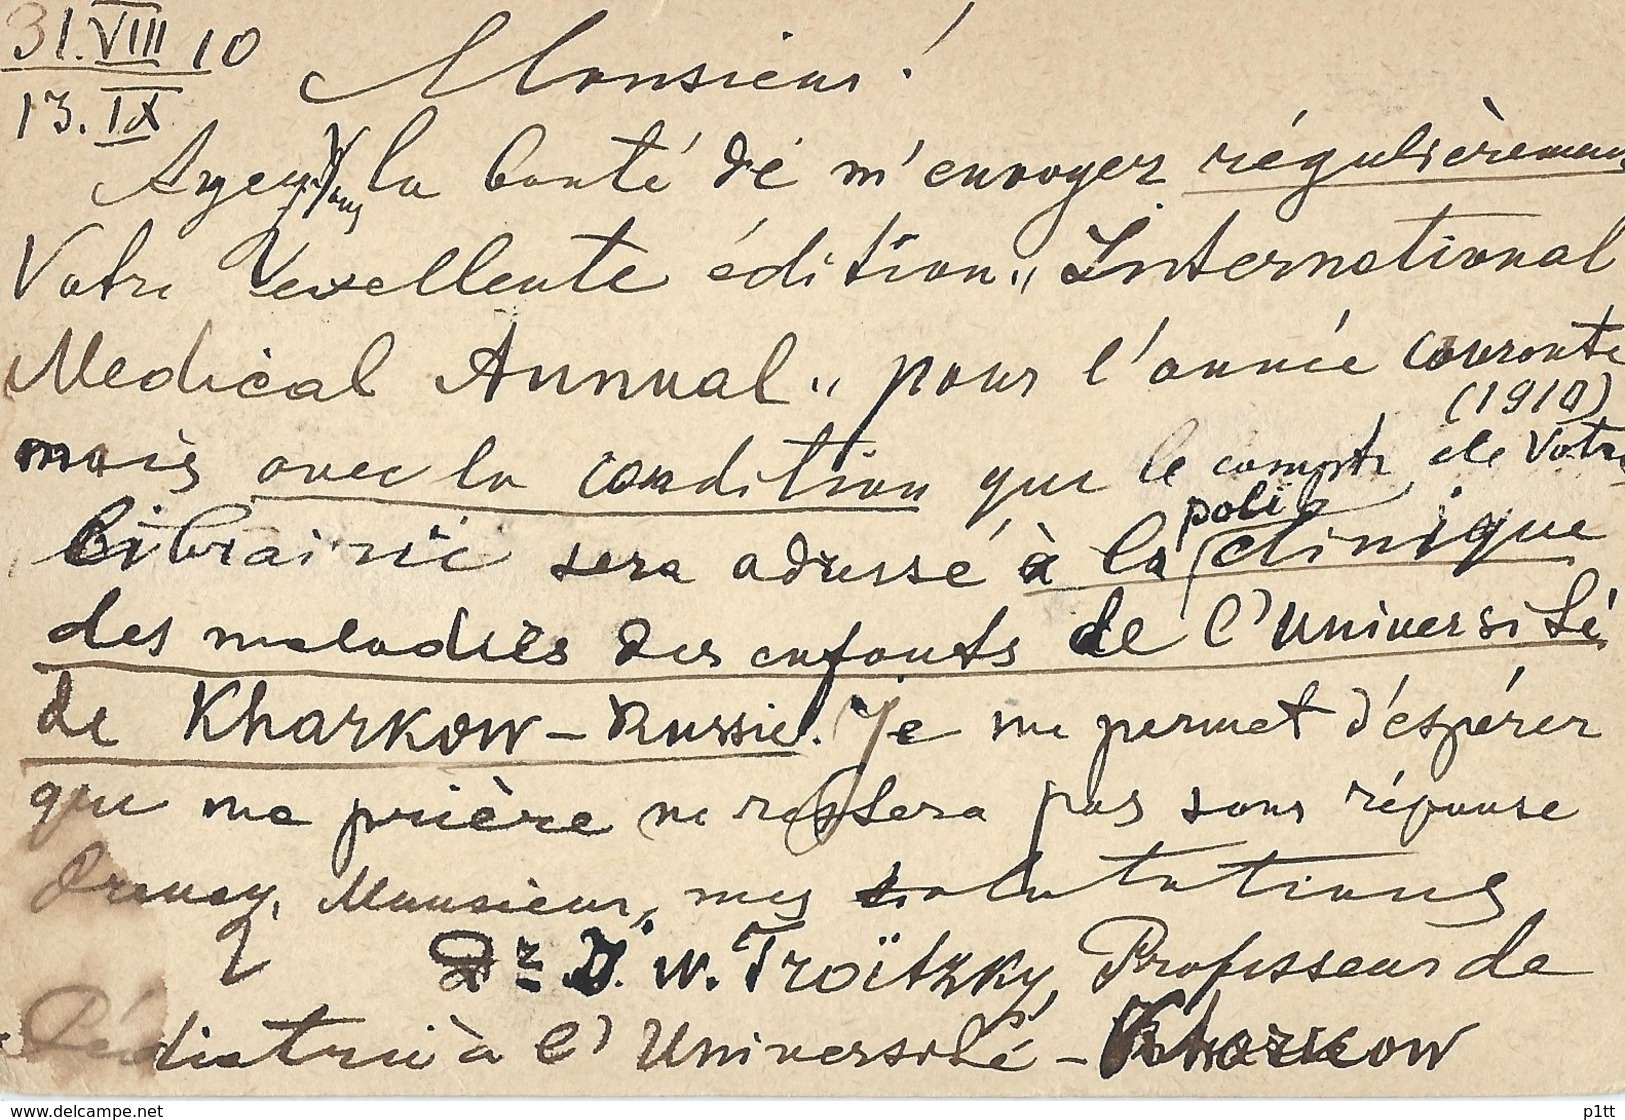 31.VIII 10
13.IX
Monsieur!
Ayez Vous la bonté de m'envoyer régulièrement
Votre excellente édition „International
Medical Annual„ pour l'année courante
(1910)
mais avec la condition que le compte de Votre
librairie sera adressé à la poliклinique
des maladies des enfants de l'Université
de Kharkow – Russie. Je me permet d'espérer
que ma prière ne restera pas sans réponse
Monsieur, mes salutations
Dr J. W. Troïtzky, Professeur de
Pédiatrie à l'Université – Kharkow
www.delcampe.net
p1tt